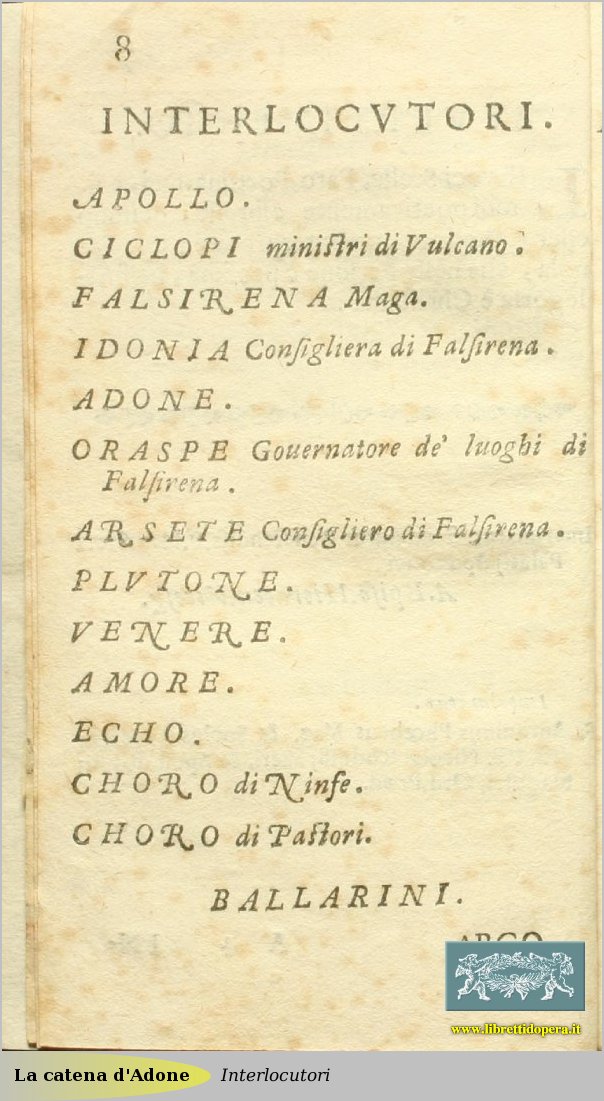 8
INTERLOCVTORI.
APOLLO.
CICLOPI miniſtri di Vulcano.
FALSIRENA Maga.
IDONIA Conſigliera di Falſirena.
ADONE.
ORASPE Gouernatore de' luoghi di
Falſirena.
ARSETE Conſigliero di Falſirena.
PLVTONE.
VENERE.
AMORE.
ECHO.
CHORO di Ninfe.
CHORO di Paſtori.
BALLARINI.
www.librettidopera.it
La catena d'Adone Interlocutori